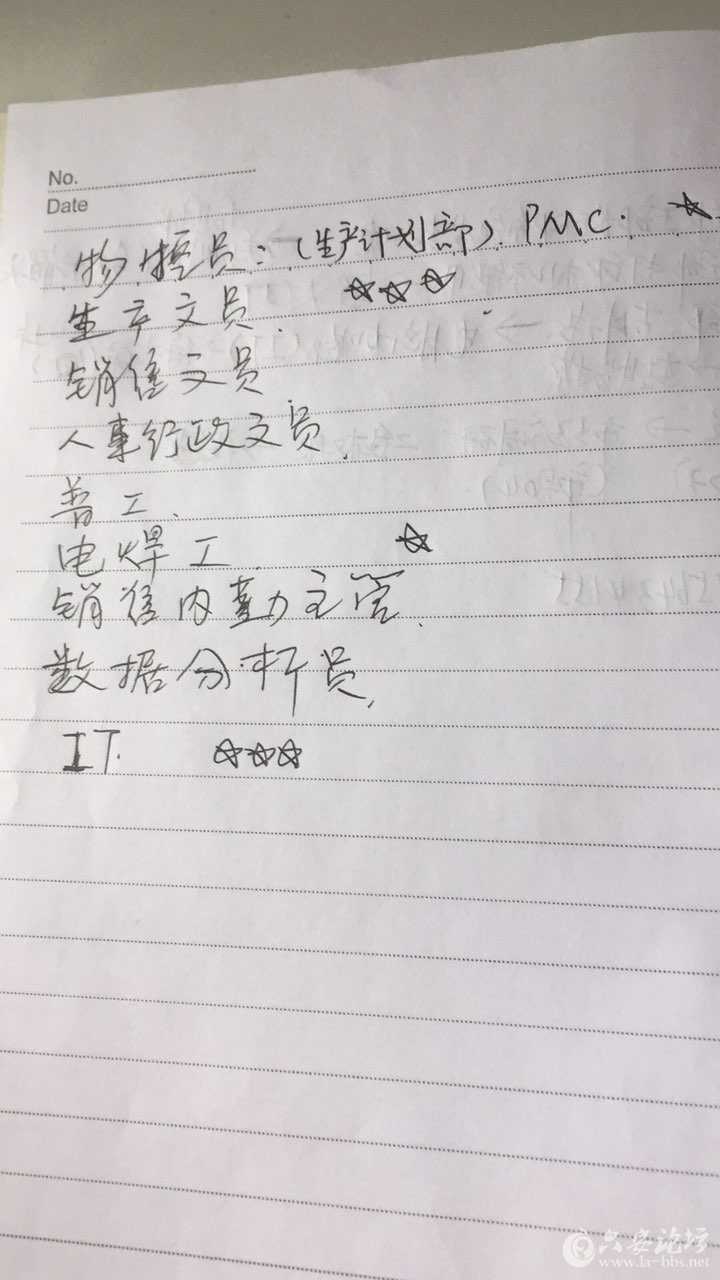 No.
Date
物控员:(生产计划部) PMC. ☆
生产文员. ☆☆☆
销售文员
人事行政文员.
普工.
电焊工. ☆
销售内勤主管.
数据分析员.
IT. ☆☆☆
六安论坛
www.la-bbs.net